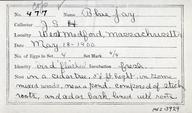 No. 477 Name Blue Jay
Collector
Locality West Medford, Massachusetts
Date May 18-1900
No. of Eggs in Set 4 Set Mark
Identity bird flushed Incubation fresh
Nest on a cedar tree, 8 ft. high, in some
mixed woods, near a pond, composed of sticks,
roots, and cedar bark, lined with roots.